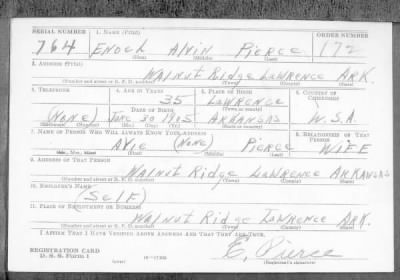 SERIAL NUMBER 1. NAME (Print) ORDER NUMBER
764 ENOCH Alvin PIERCE 172
(First) (Middle) (Last)
2. ADDRESS (Print)
Walnut Ridge LAWRENCE ARK.
(Number and street or R. F. D. number) (Town) (County) (State)
3. TELEPHONE 4. AGE IN YEARS 5. PLACE OF BIRTH 6. COUNTRY OF CITIZENSHIP
35 LAWRENCE
(Town or county)
DATE OF BIRTH
(NONE) JUNE 30 1905 ARKANSAS U.S.A.
(Mo.) (Day) (Yr.) (State or country)
7. NAME OF PERSON WHO WILL ALWAYS KNOW YOUR ADDRESS 8. RELATIONSHIP OF THAT PERSON
AVIE (NONE) PIERCE WIFE
(First) (Middle) (Last)
9. ADDRESS OF THAT PERSON
Walnut Ridge LAWRENCE ARKANSAS
(Number and street or R. F. D. number) (Town) (County) (State)
10. EMPLOYER'S NAME
(SELF)
11. PLACE OF EMPLOYMENT OR BUSINESS
Walnut Ridge LAWRENCE ARK.
(Number and street or R. F. D. number) (Town) (County) (State)
I AFFIRM THAT I HAVE VERIFIED ABOVE ANSWERS AND THAT THEY ARE TRUE.
E. Pierce
REGISTRATION CARD
D. S. S. Form 1 (over) (Registrant's signature)